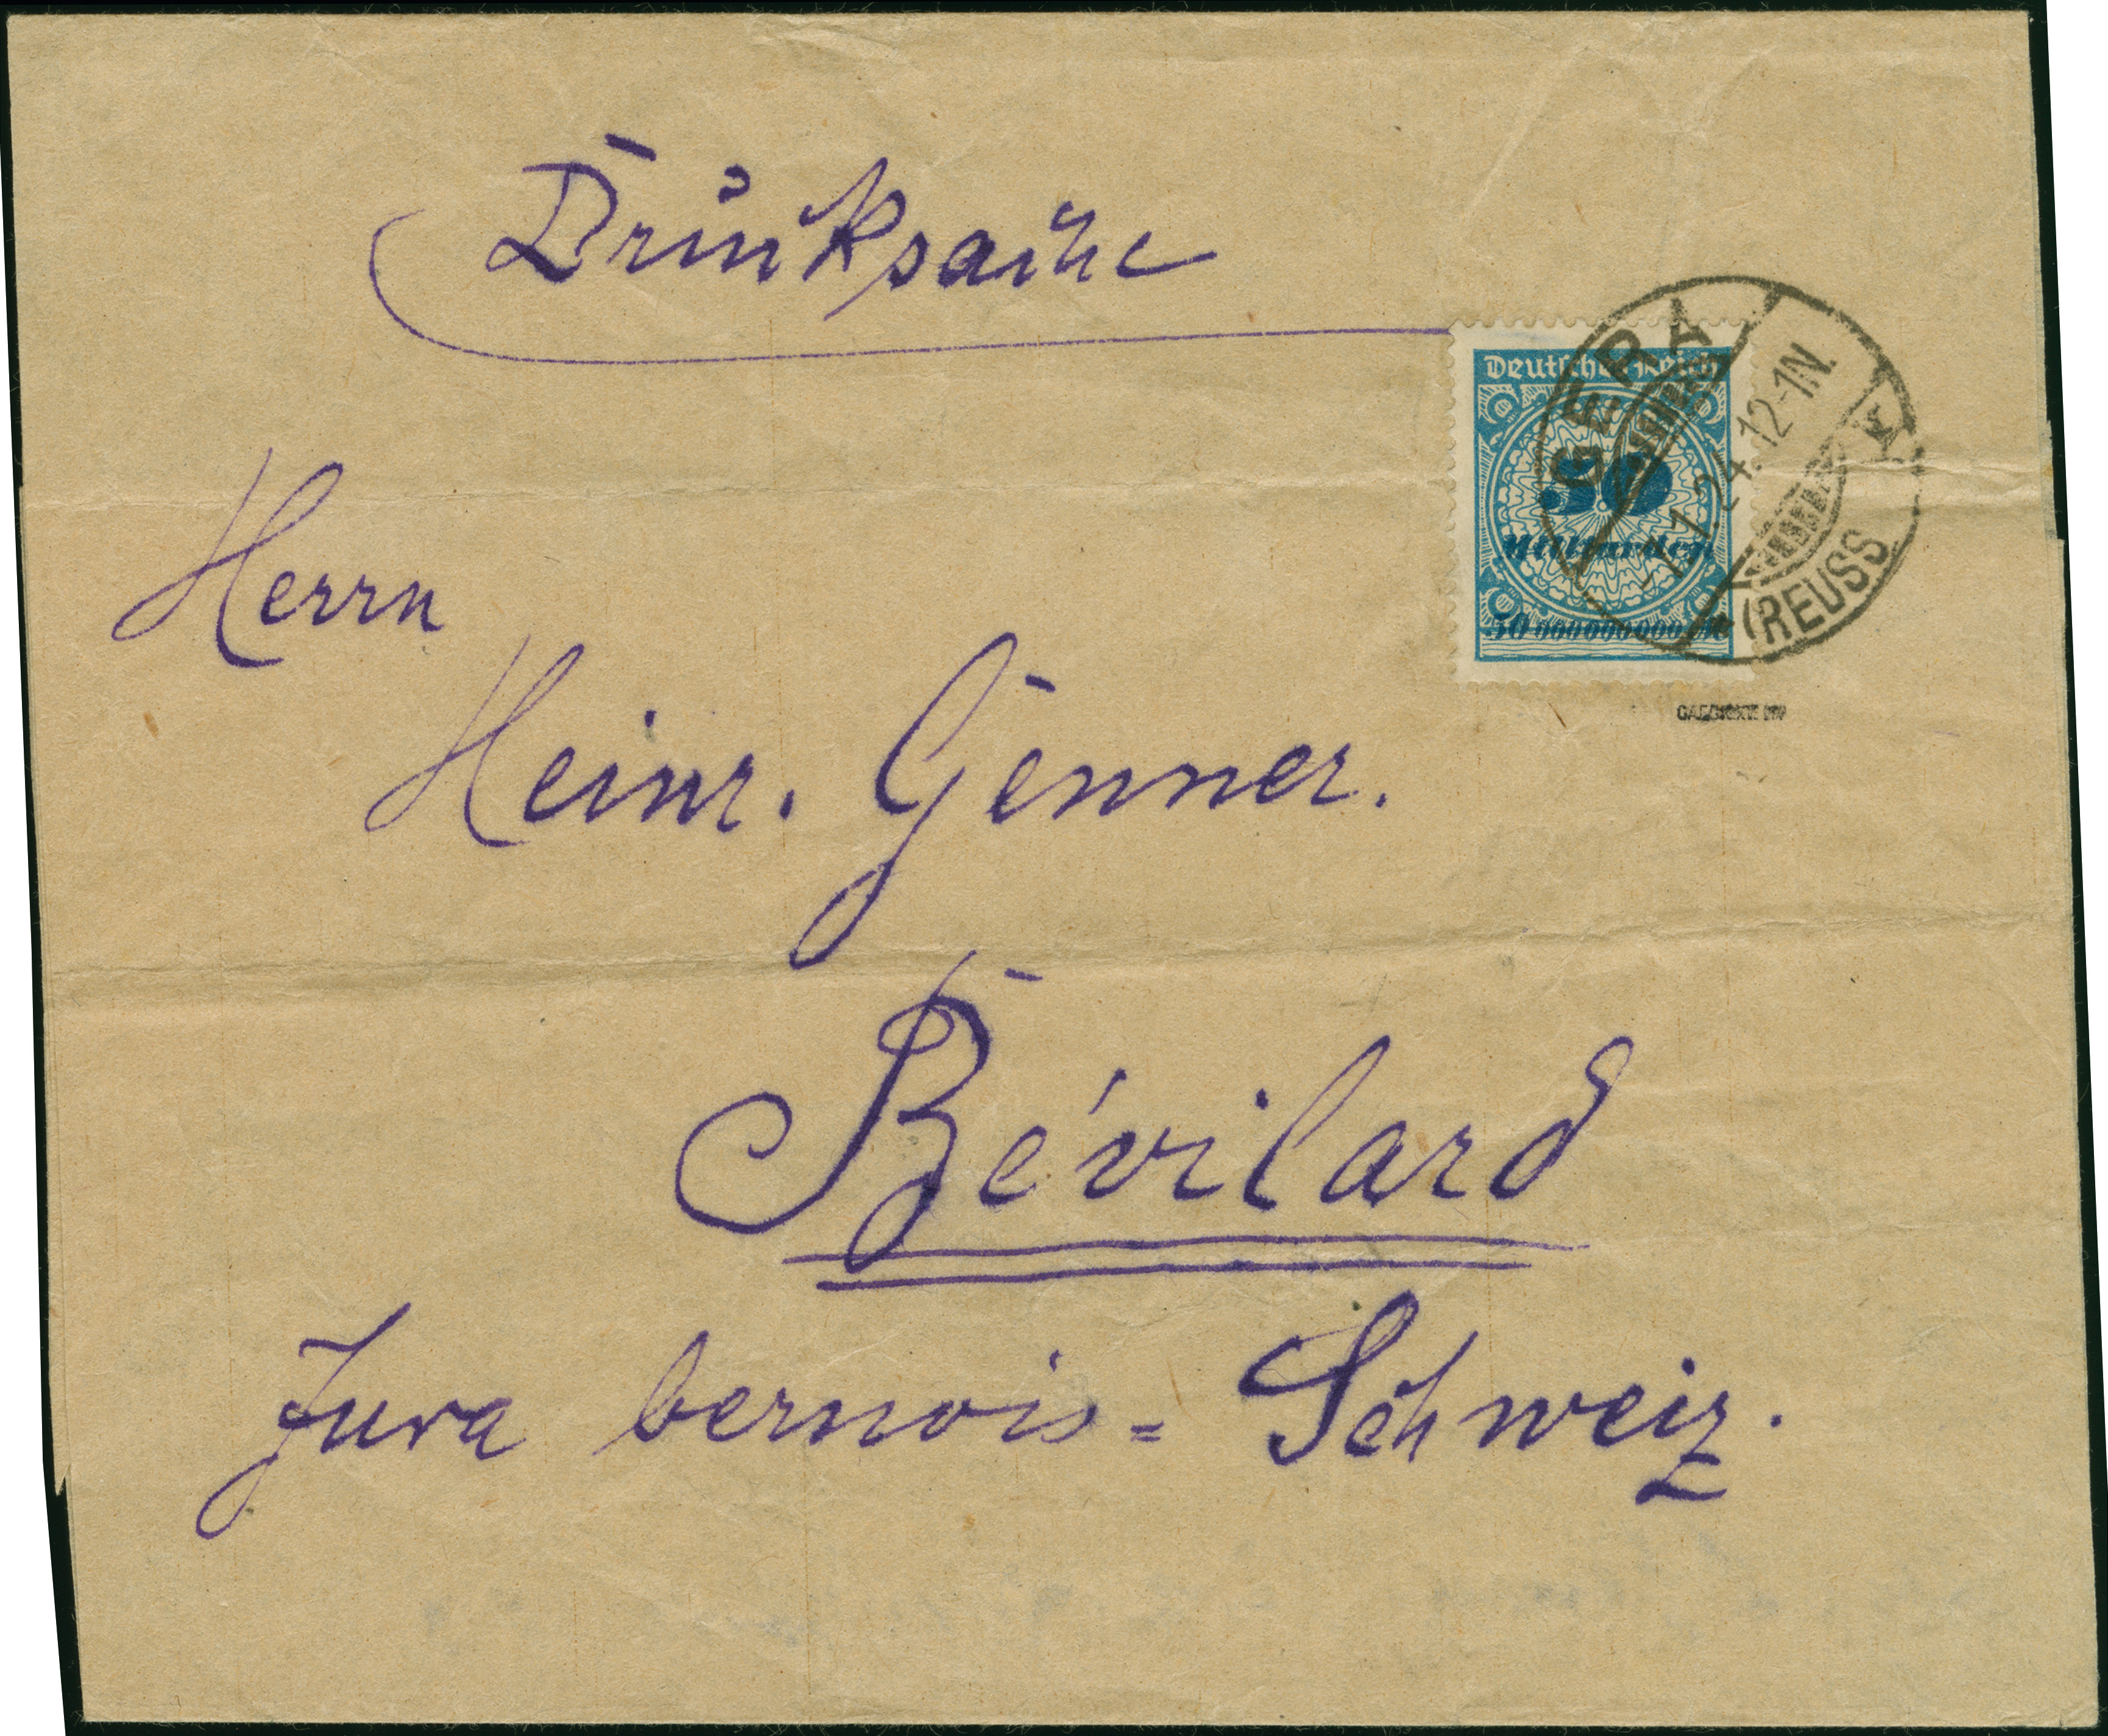 Drucksache
Deutsches Reich
50
Milliarden
50 000 000 000
GERA
1.24.12-1N.
(REUSS
Herrn
Heinr. Genner.
Bévilard
Jura bernois = Schweiz.